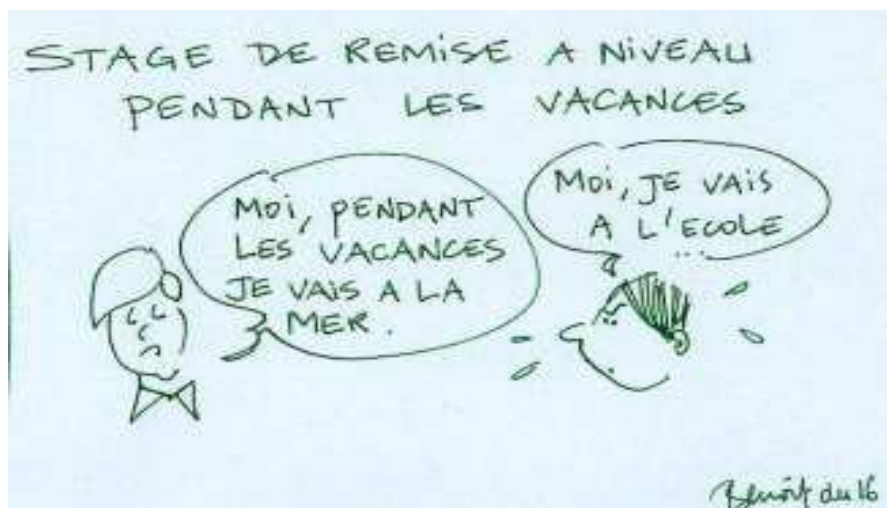 STAGE DE REMISE A NIVEAU
PENDANT LES VACANCES
MOI, PENDANT
LES VACANCES
JE VAIS A LA
MER.
MOI, JE VAIS
A L'ECOLE
...
Benoît du 16